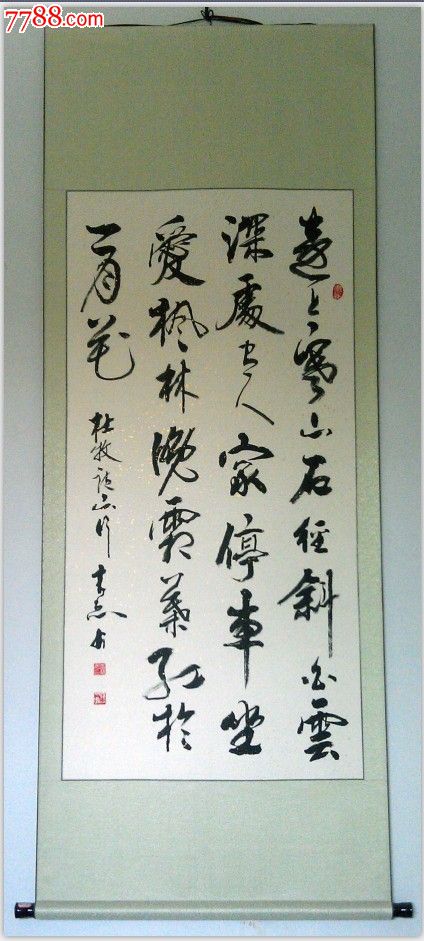 7788.com
遠上寒山石径斜白雲
深處有人家停車坐
愛楓林晚霜葉紅於
二月花
杜牧詩山行